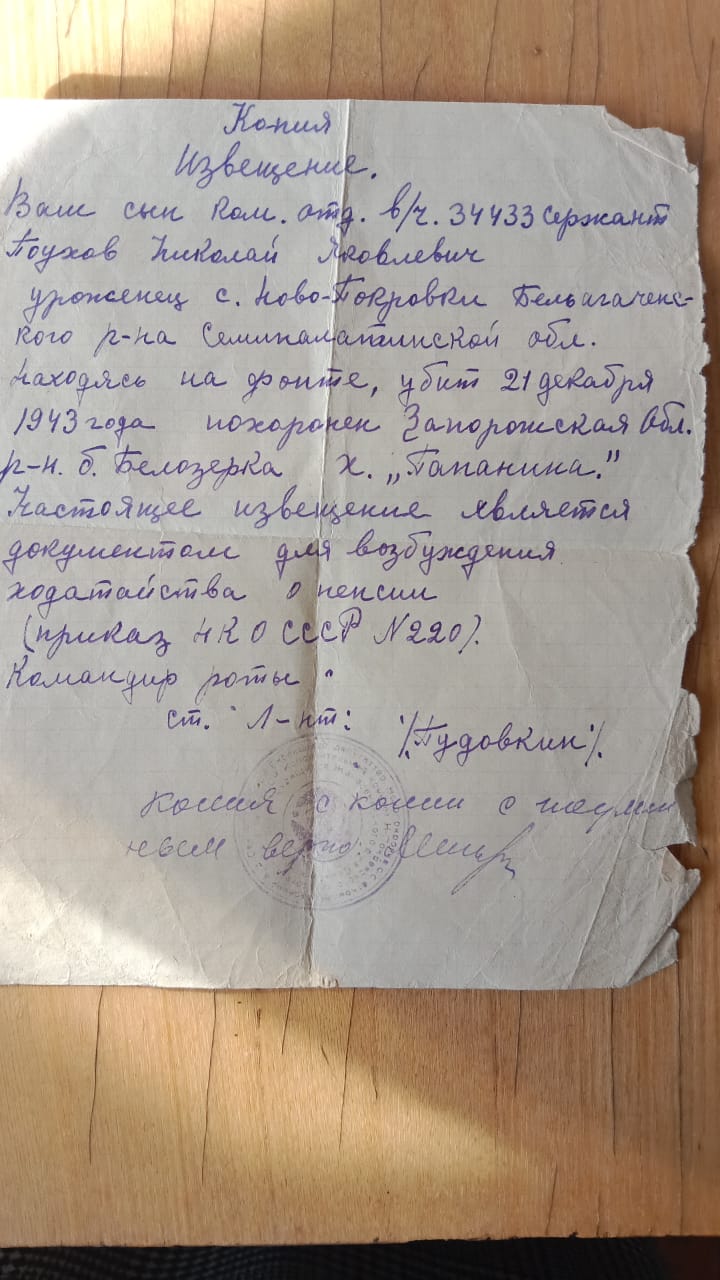 Копия
Извещение.
Ваш сын Ком. отд. в/ч. 34433 сержант
Поухов Николай Яковлевич
уроженец с. Ново-Покровки Бельагаченс-
кого р-на Семипалатинской обл.
находясь на фронте, убит 21 декабря
1943 года похоронен Запорожская Обл.
р-н. б. Белозерка х. „Папанина."
Настоящее извещение является
документом для возбуждения
ходатайства о пенсии
(приказ НКО СССР N220).
Командир роты:
ст. Л-нт: /Пудовкин/.
копия с копии с
верно